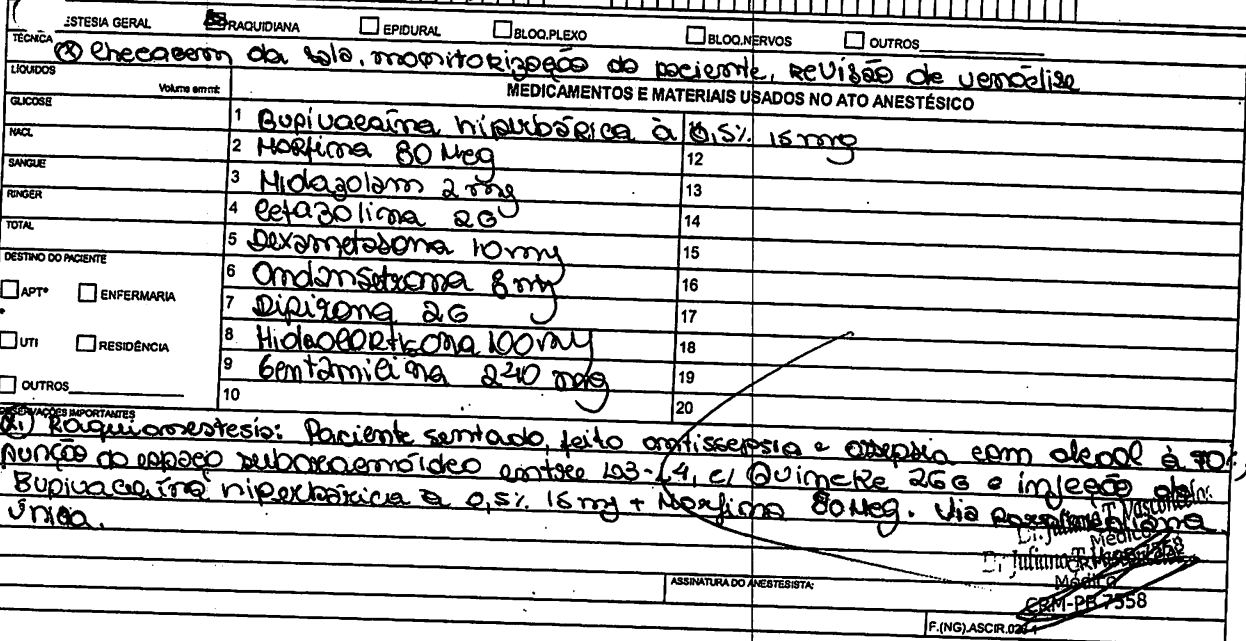 ESTESIA GERAL RAQUIDIANA EPIDURAL BLOQ.PLEXO BLOQ.NERVOS OUTROS
TÉCNICA
Checagem da sala, monitorização do paciente, revisão de venóclise
LÍQUIDOS Volume em ml: MEDICAMENTOS E MATERIAIS USADOS NO ATO ANESTÉSICO
GLICOSE
NACL
SANGUE
RINGER
TOTAL
DESTINO DO PACIENTE
APTº ENFERMARIA
UTI RESIDÊNCIA
OUTROS
1 Bupivacaína hiperbárica à 0,5% 15mg
2 Morfina 80 Mcg 12
3 Midazolam 2 mg 13
4 Cefazolina 2G 14
5 Dexametasona 10mg 15
6 Ondansetrona 8mg 16
7 Dipirona 2G 17
8 Hidrocortisona 100mg 18
9 Gentamicina 240 mg 19
10 20
OBSERVAÇÕES IMPORTANTES
Raquianestesia: Paciente sentado, feito antissepsia e assepsia com alcool à 70%,
punção do espaço subaracnóideo entre L3-L4, c/ Quincke 26G e injeção de
Bupivacaína hiperbárica a 0,5% 15mg + Morfina 80Mcg. Via paramediana
única.
Médico
Médico
CRM-PB 7558
ASSINATURA DO ANESTESISTA:
F.(NG).ASCIR.02